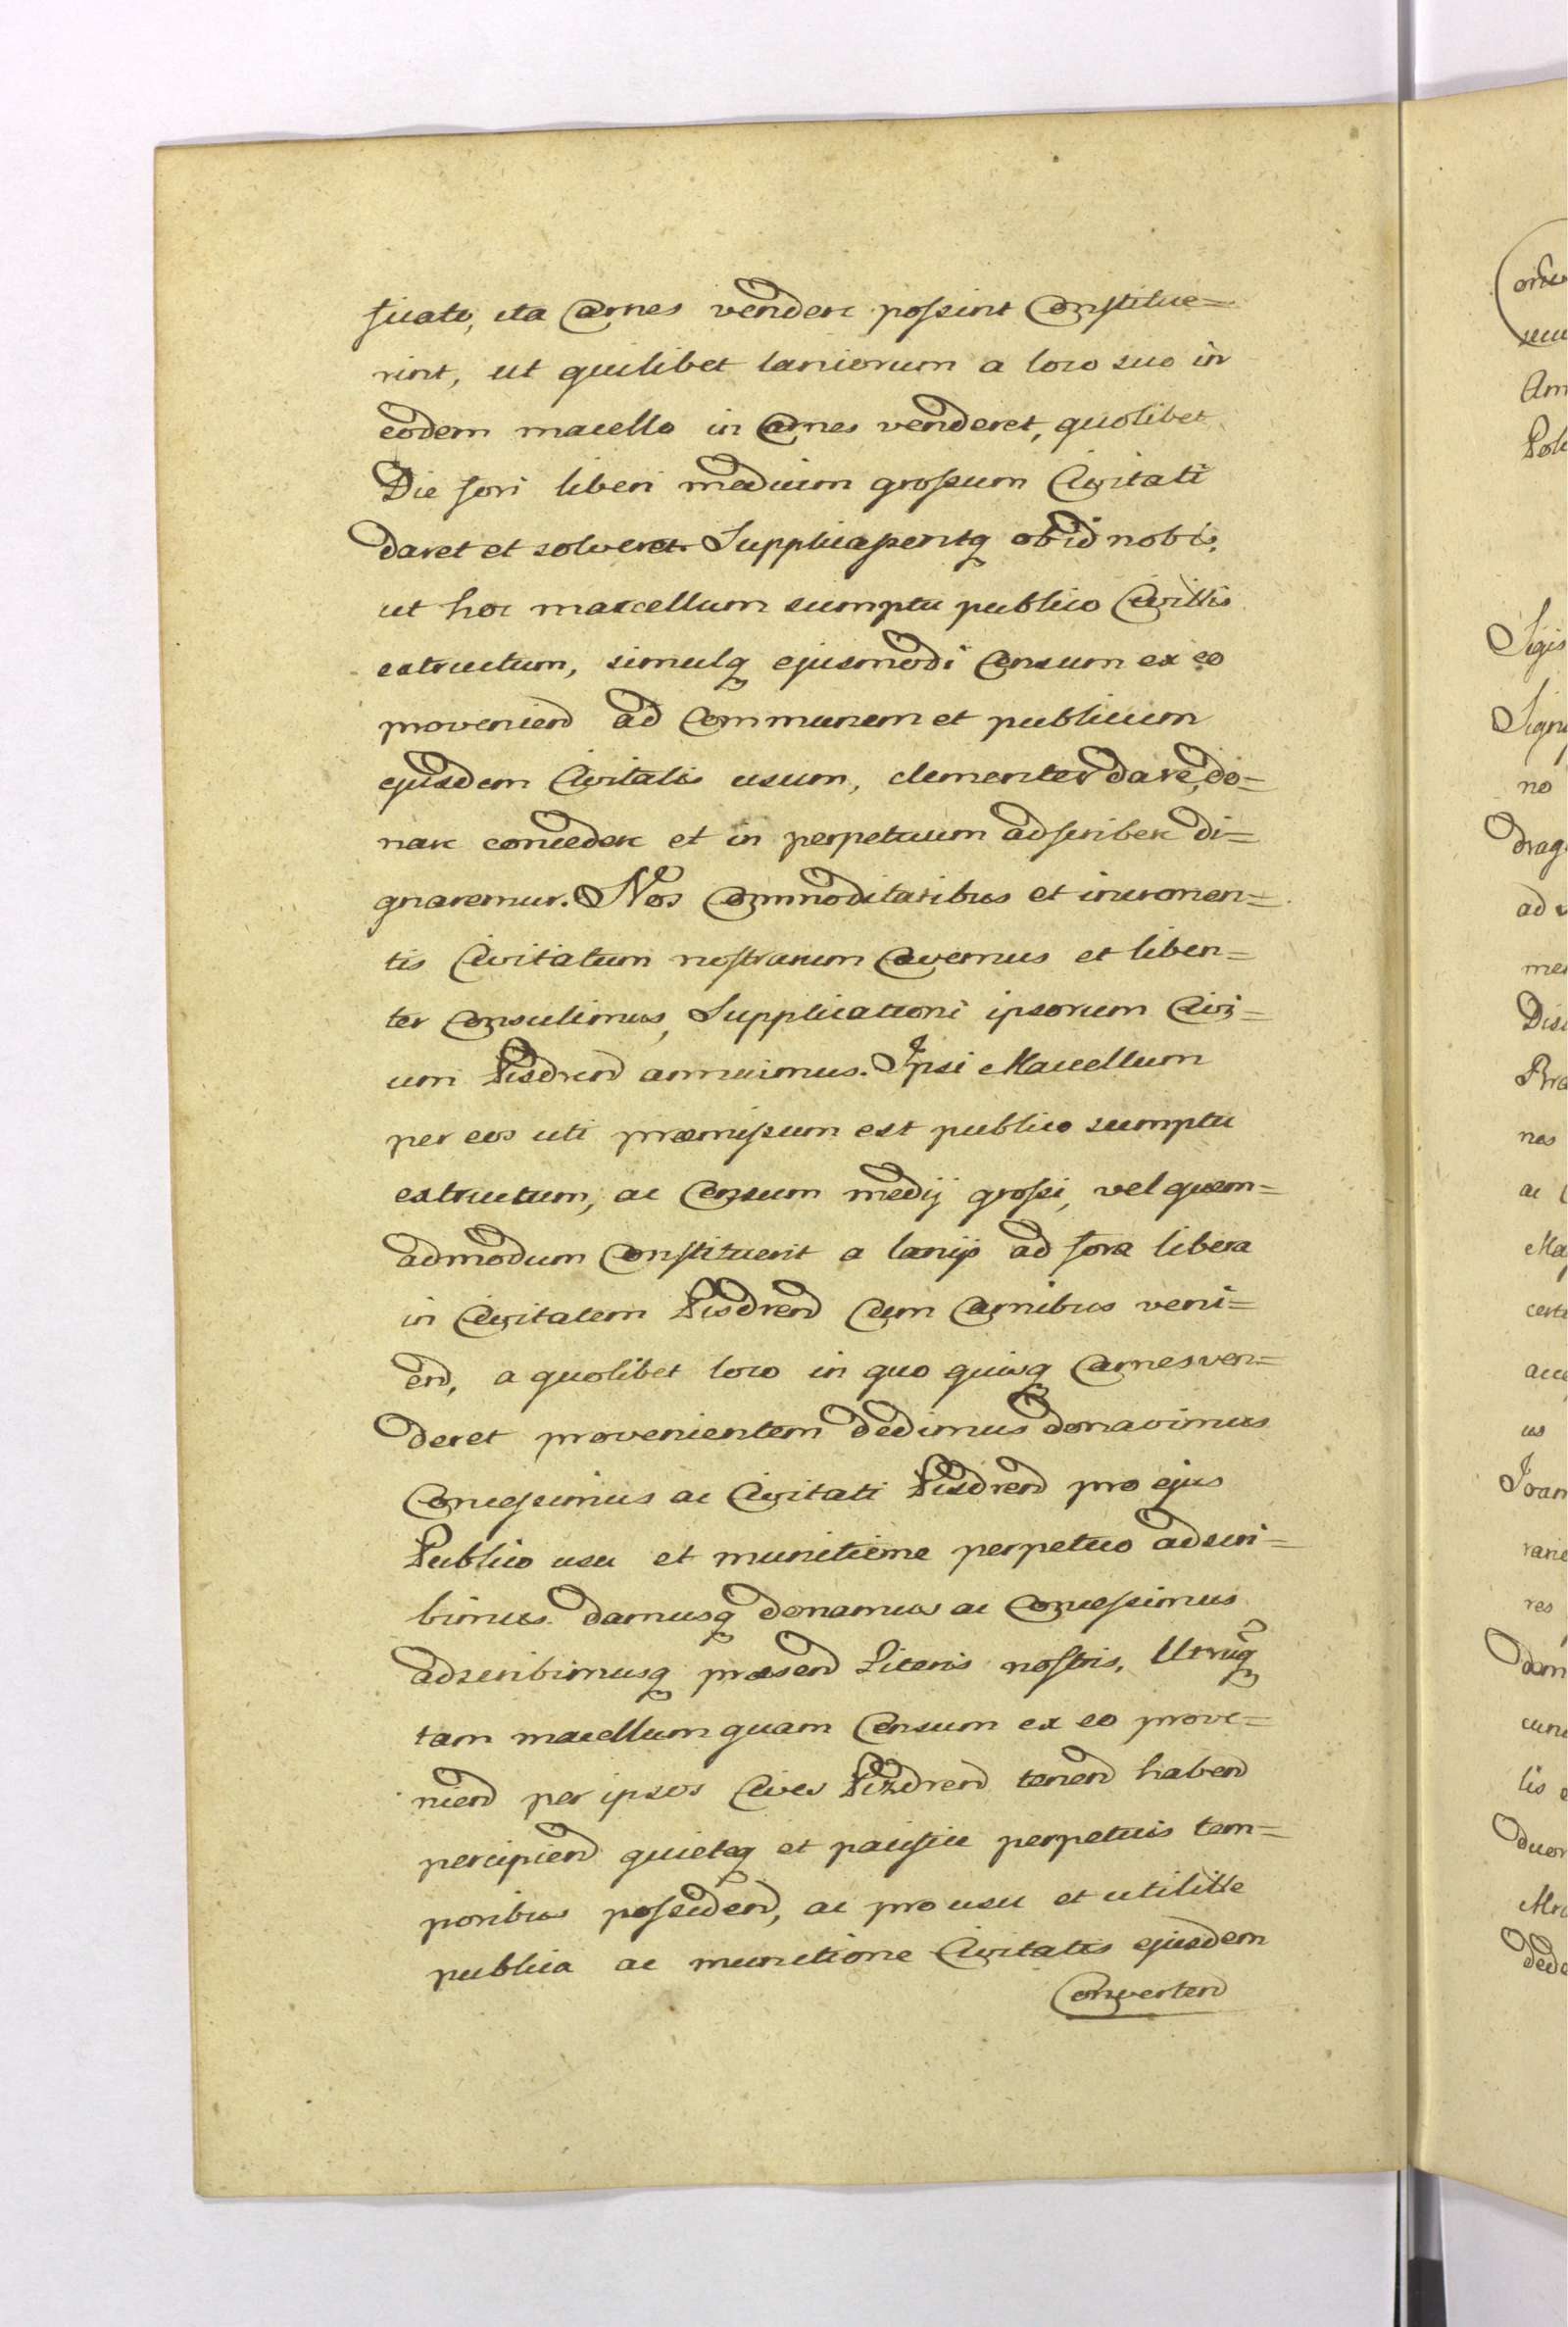 sicato, ita Carnes vendere possint Constitue=
rint, ut quilibet laniorum a loco suo in
eodem macello in Carnes venderet, quolibet
Die fori liberi medium grossum Civitati
daret et solveret Supplicassentq obid nobis,
ut hoc marcellum sumptu publico Civittis
extructum, simulq ejusmodi Censum ex eo
proveniend ad Communem et publicum
ejusdem Civitatis usum, clementer dare, do=
nare concedere et in perpetuum adscribere di=
gnaremur. Nos Commoditatibus et incremen=
tis Civitatum nostrarum Cavemus et liben=
ter Consulimus, Supplicationi ipsorum Civi=
um Pisdrend annuimus. Ipsi Macellum
per eos uti præmissum est publico sumptu
extructum, ac Censum medij grossi, vel quem=
admodum Constituerit a lanijs ad fora libera
in Civitatem Pisdrend Cum Carnibus veni=
end, a quolibet loco in quo quisq Carnes ven=
deret provenientem dedimus donavimus
Concessimus ac Civitati Pisdrend pro ejus
Publico usu et munitione perpetuo adscri=
bimus damusq donamus ac Concessimus
adscribimusq præsend Literis nostris, Utrumq
tam macellum quam Censum ex eo prove=
niend per ipsos Cives Pizdrend tenend habend
percipiend quieteq et pacifice perpetuis tem=
poribus possidend, ac pro usu et utilitte
publica ac munitione Civitatis ejusdem
Convertend